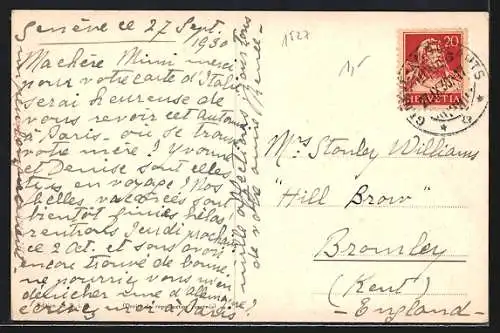 Genève ce 27 Sept.
1930
Ma chère Mimi merci
pour votre carte d'Italie
serai heureuse de
vous revoir cet automne
à Paris - où se trouve
votre mère? Yvonne
et Denise sont elles
en voyage? Nos
belles vacances sont
bientôt finies hélas
rentrons Jeudi prochain
ce 2 Oct. et sans avoir
encore trouvé de bonne.
ne pourriez vous m'en
dénicher une d'
écrivez moi à Paris
mille affections à tous
de votre amie
1527
1,5
20
HELVETIA
Mrs Stanley Williams
"Hill Brow"
Bromley
(Kent)
England